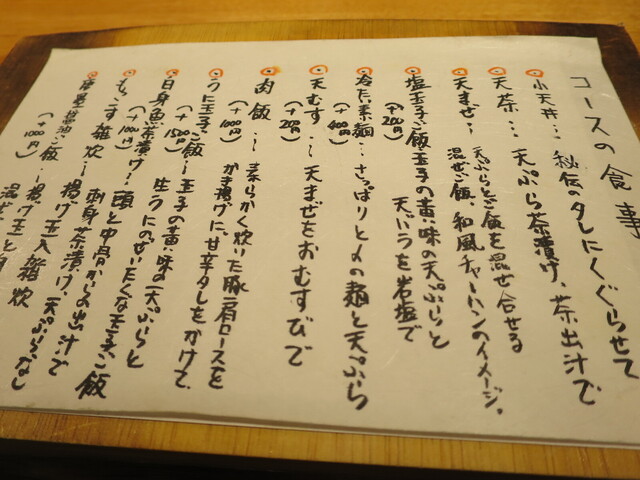 コースの食事
小天丼… 秘伝のタレにくぐらせて
天茶… 天ぷら茶漬け、茶出汁で
天まぜ… 天ぷらとご飯を混ぜ合せる
混ぜご飯、和風チャーハンのイメージ。
塩玉子ご飯…玉子の黄味の天ぷらと
(+200円) 天バラを岩塩で
冷たい素麺… さっぱりと〆の麺と天ぷら
(+400円)
天むす… 天まぜをおむすびで
(+200円)
肉飯… 柔らかく炊いた豚肩ロースを
(+1000円) かき揚げに、甘辛タレをかけて
うに玉子ご飯…玉子の黄味の天ぷらと
(+1500円) 生うにのぜいたくな玉子ご飯
白身魚茶漬け… 頭と中骨からの出汁で
(+1000円) 刺身茶漬け、天ぷらなし
もっこす雑炊… 揚げ玉入雑炊
醤油ご飯…揚げ玉と
(+1000円) 混ぜ